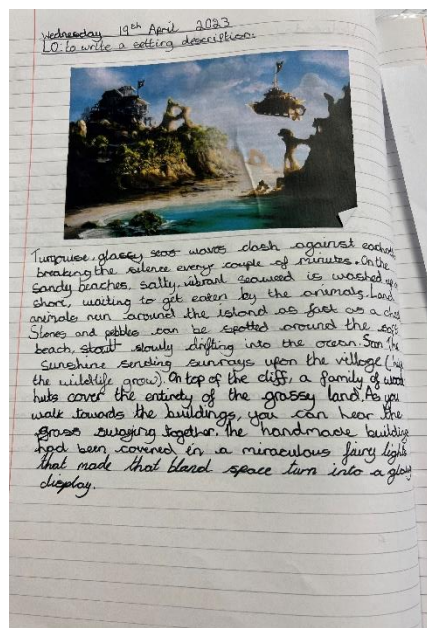 Wednesday 19th April 2023
LO: to write a setting description.
Turquoise, glassy waves clash against
breaking the silence every couple of minutes. On the
sandy beaches, salty, vibrant seaweed is washed
shore, waiting to get eaten by the animals. Land
animals run around the island as fast as a
Stones and pebbles can be spotted around the
beach, slowly drifting into the ocean. Soon, the
sunshine sending sunrays upon the village (
the wildlife grow). On top of the cliff, a family of wood
huts cover the entirety of the grassy land. As you
walk towards the buildings, you can hear the
grass swaying together. The handmade building
had been covered in a miraculous fairy lights
that made that bland space turn into a
display.